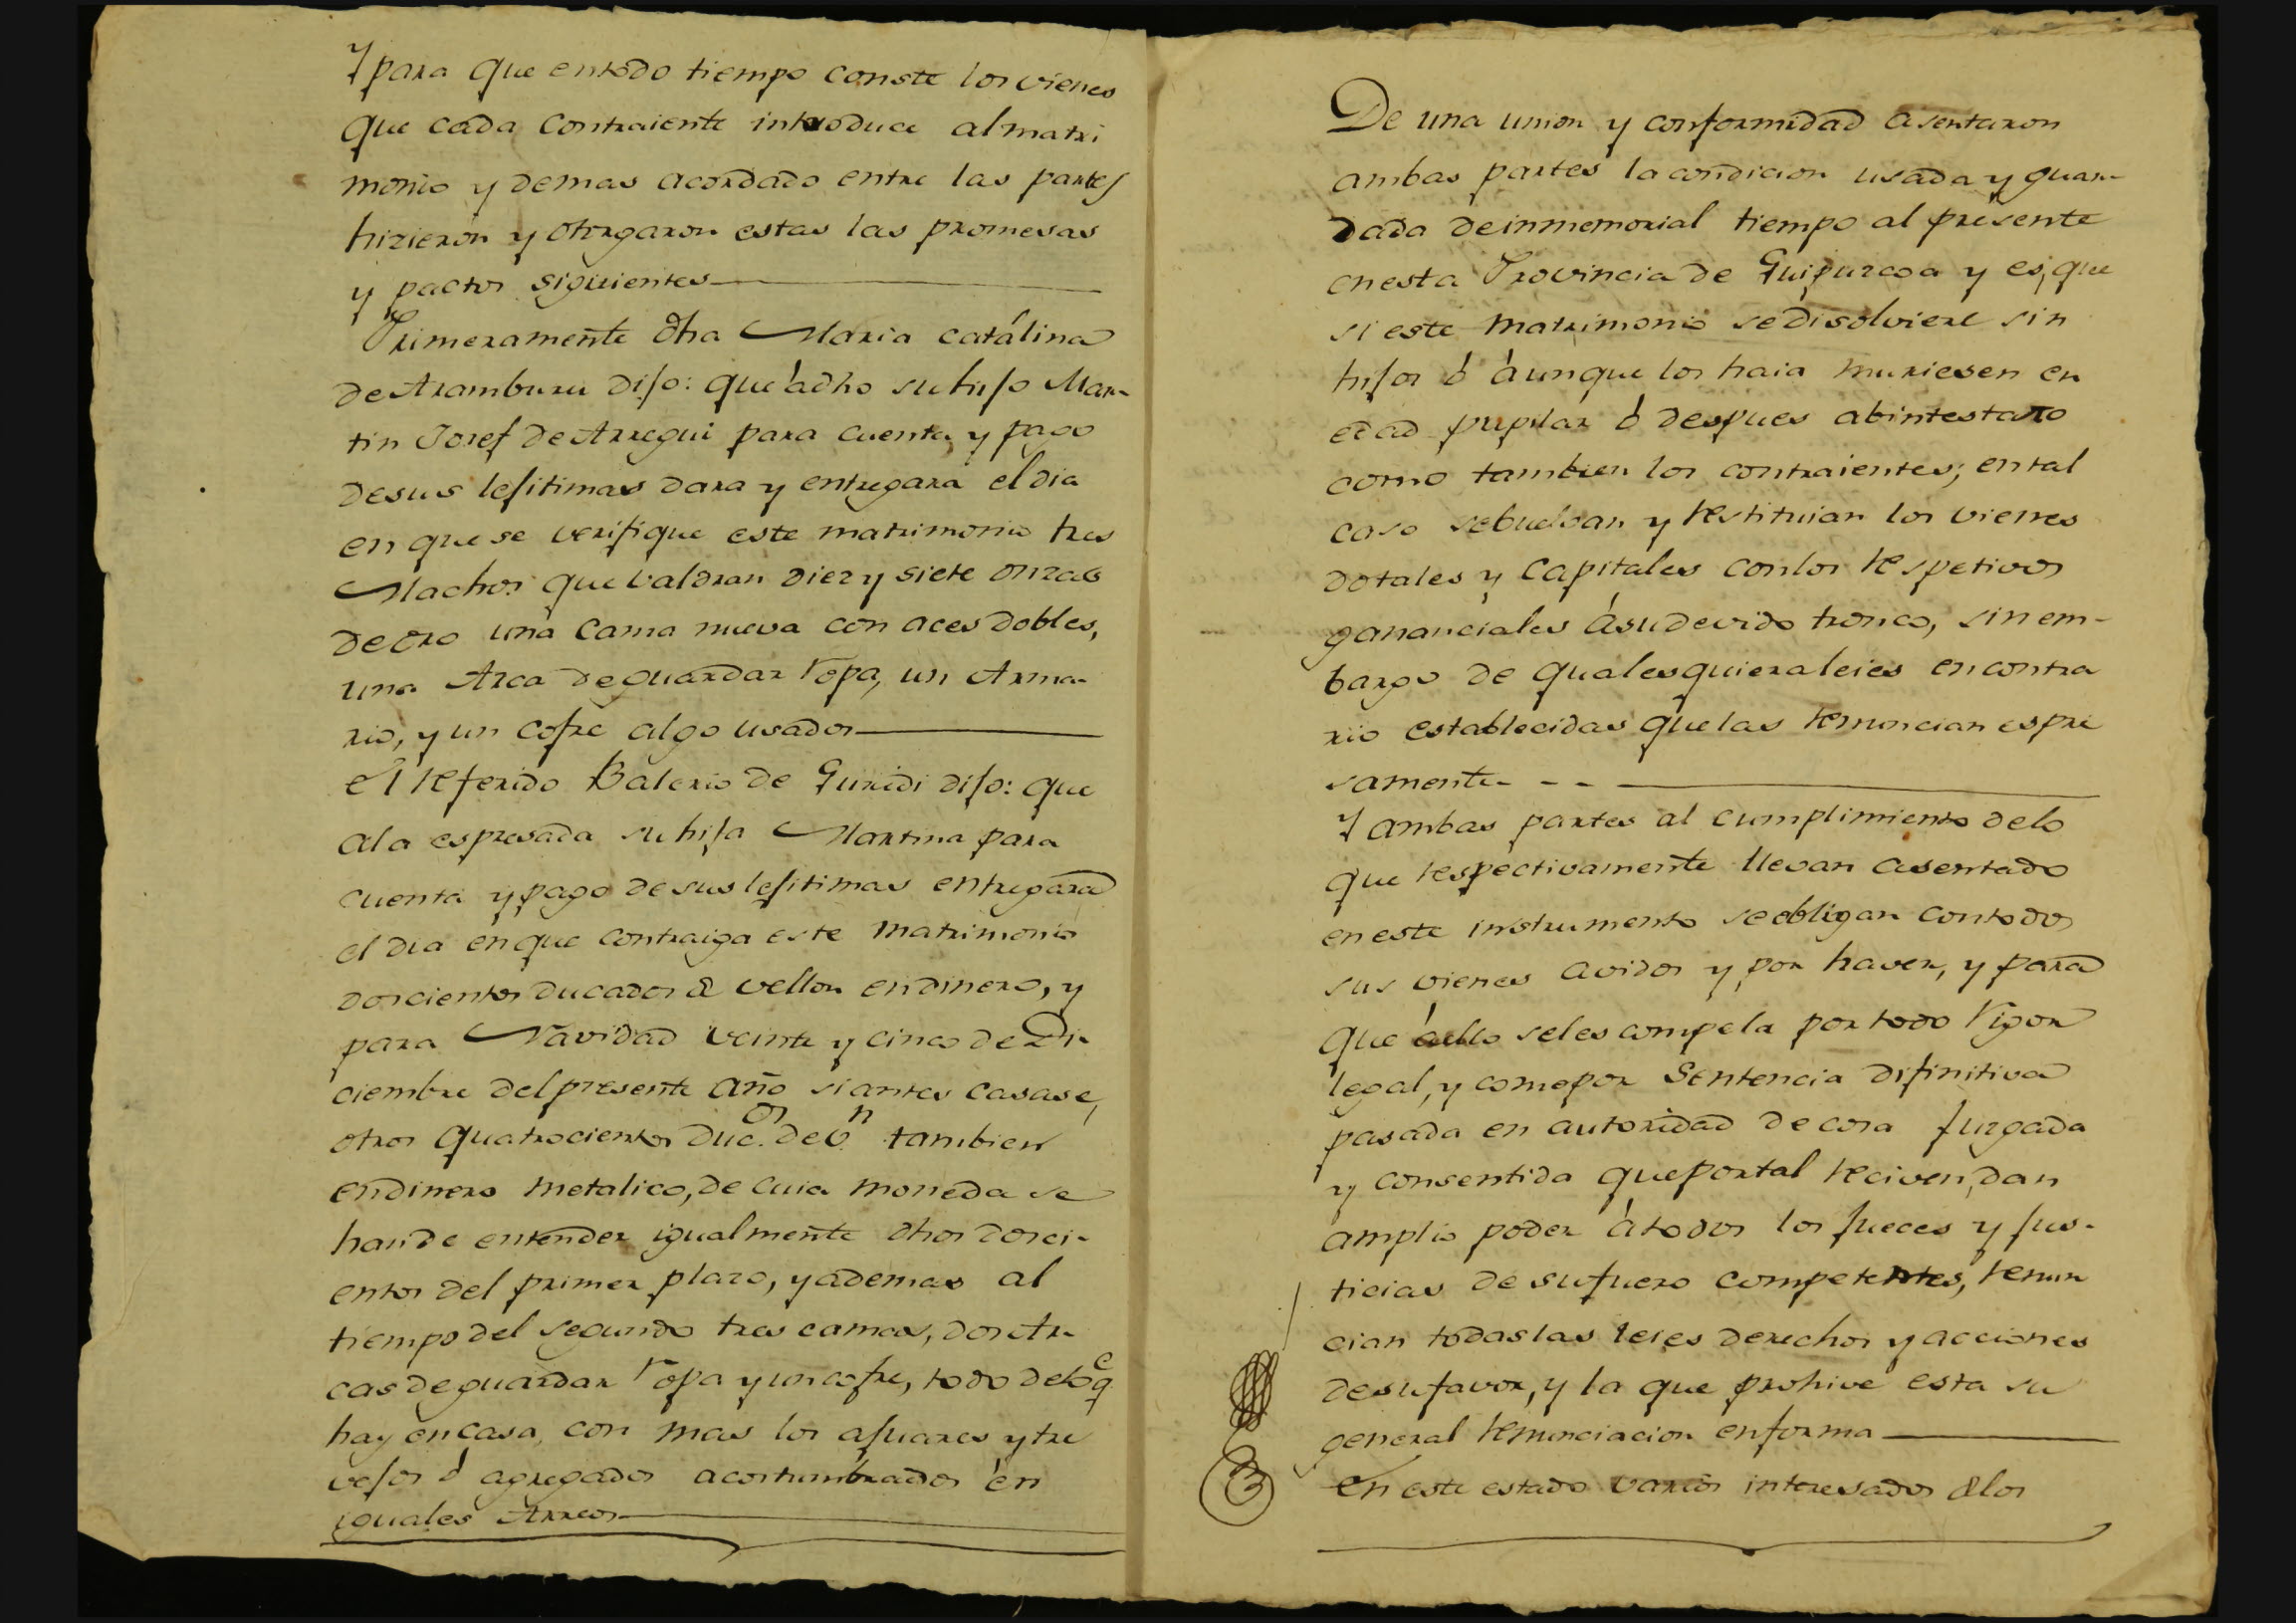 Y para que entodo tiempo conste los vienes
que cada Contraiente introduce almatri
monio y demas acordado entre las partes
hizieron y otorgaron estas las promesas
y pactos siguientes
Primeramente dha Maria catalina
de Aramburu dijo: que àdho su hijo Mar-
tin Josef de Arregui para cuenta y pago
desus lejitimas dara y entregara el dia
en que se verifique este matrimonio tres
Machos que valdran diez y siete onzas
de oro una Cama nueva con aces dobles,
una Arca de guardar ropa, un Arma-
rio, y un cofre algo usados
el referido Balerio de Guridi dijo: que
ala espresada su hija Martina para
cuenta y pago de sus lejitimas entregara
el dia en que contraiga este matrimonio
doscientos ducados de vellon endinero, y
para Navidad veinte y cinco de Di-
ciembre del presente año si antes casase,
otros quatrocientos duc.os de v.n tambien
endinero metalico, de cuia moneda se
hande entender igualmente dhos dosci-
entos del primer plazo, y ademas al
tiempo del segundo tres camas, dos Ar-
cas de guardar ropa y un cofre, todo delo q.e
hay en casa, con mas los ajuares y tre
vejos ò agregados acostumbrados èn
iguales Arreos
De una union y conformidad asentaron
ambas partes la condicion usada y guar-
dada de inmemorial tiempo al presente
en esta Provincia de Guipuzcoa y es, que
si este matrimonio se disolviere sin
hijos ò àunque los haia muriesen en
edad pupilar ò despues abintestato
como tambien los contraientes; en tal
caso sebuelvan y restituian los vienes
dotales y Capitales con los respetivos
gananciales àsu devido tronco, sin em-
bargo de qualesquiera leies en contra
rio establecidas que las renuncian espre
samente - -
Y ambas partes al cumplimiento delo
que respectivamente llevan asentado
en este instrumento se obligan con todos
sus vienes avidos y por haver, y para
que àello seles compela por todo rigor
legal, y como por Sentencia difinitiva
pasada en autoridad de cosa juzgada
y consentida que por tal reciven, dan
amplio poder àtodos los jueces y jus-
ticias de su fuero competentes, renun
cian todas las leies derechos y acciones
de su favor, y la que prohive esta su
general renunciacion en forma
En este estado varios interesados de los